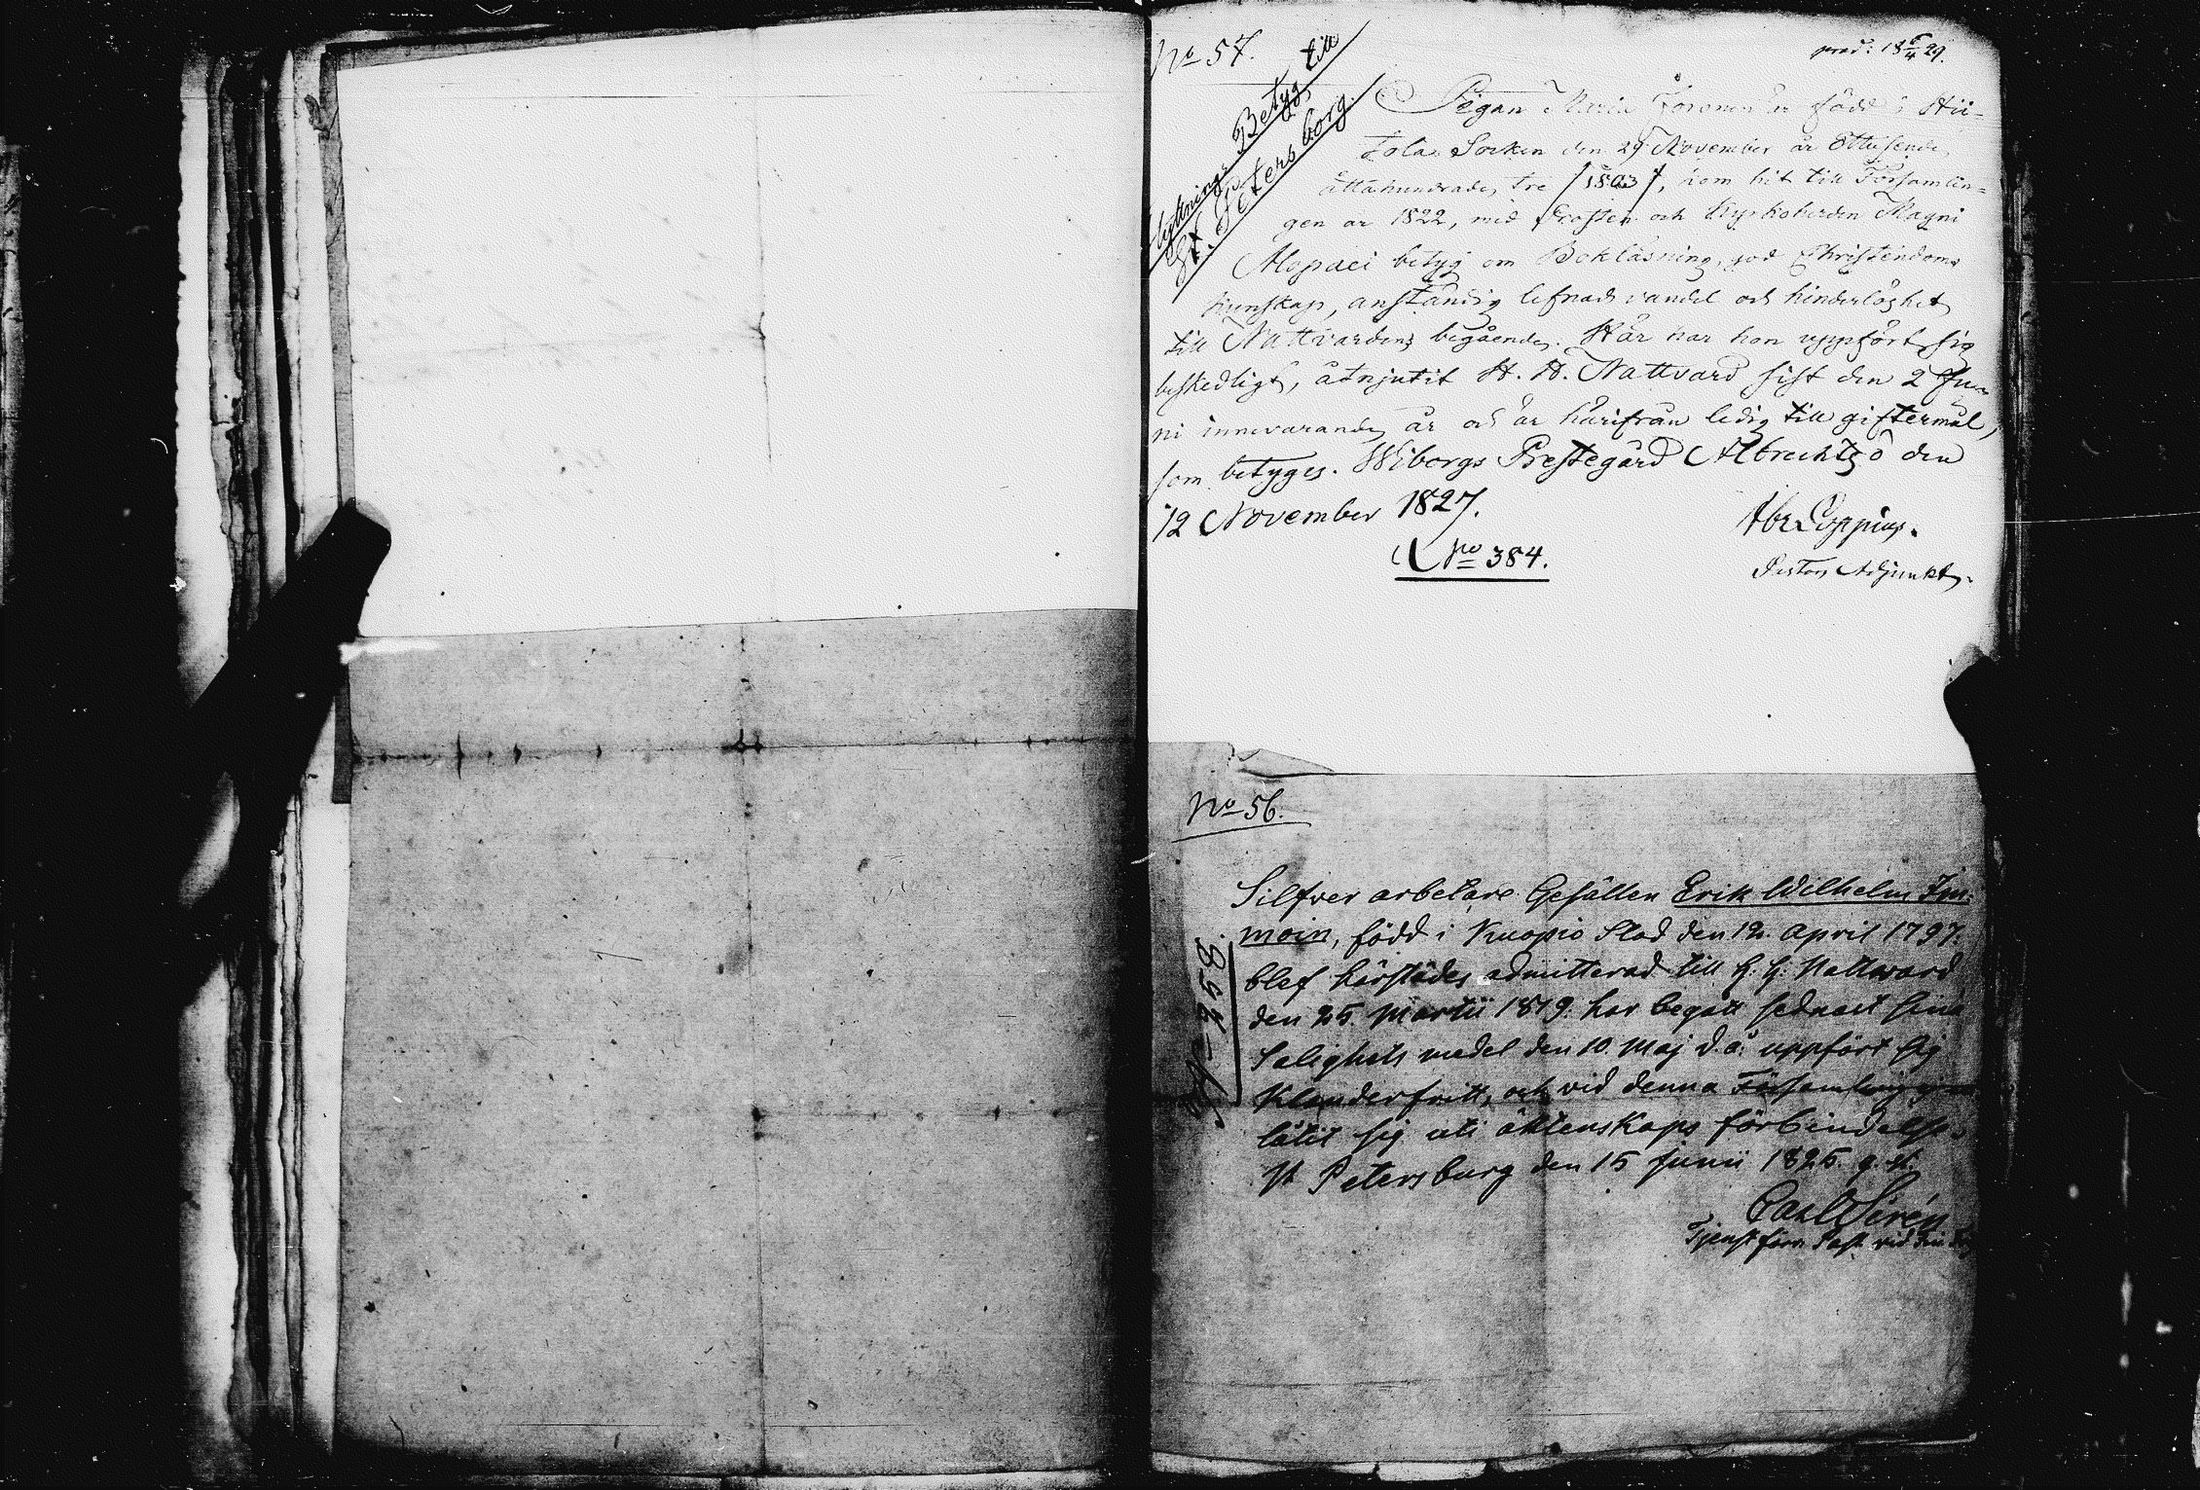 No 57.
prod: 18 6/4 29.
flyttnings Betyg till
St. Petersborg.
Pigan Maria är född i Hii-
tola Socken den 29 November år Ettusende,
åttahundrade, tre /1803/, kom hit till Församlin-
gen år 1822, med Prosten och Kyrkoherden Magni
Alopaei betyg om Bokläsning, god Christendoms
kunskap, anständig lefnads vandel och hinderlöshet
till Nattvardens begående. Här har hon uppfört sig
beskedligt, åtnjutit H. H. Nattvard sist den 2 Ju-
ni innevarande år och är härifrån ledig till giftermål,
som betyges. Wiborgs Prestegård Albrechtsö den
12 November 1827.
Abr Poppius.
No 384.
Pastors Adjunkt.
No 56.
No 258.
Silfver arbetare Gesällen Erik Wilhelm Im-
moin, född i Kuopio Stad den 12. April 1797.
blef härstädes admitterad till H. H. Nattward
den 25. Martii 1819. har begått sednast sina
Salighets medel den 10. Maj d. å. uppfört sig
klanderfritt, och vid denna Församling
låtit sig uti äktenskaps förbindelse.
St Petersburg den 15 Junii 1825. g. st.
Carl Sirén
Tjenst förr. Past. vid